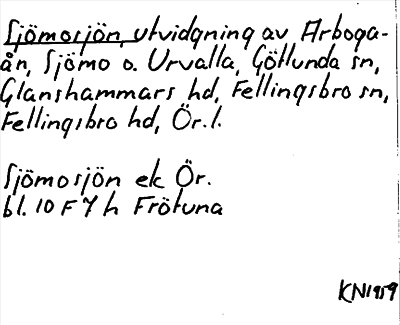 Sjömosjön, utvidgning av Arboga-
ån, Sjömo o. Urvalla, Götlunda sn,
Glanshammars hd, Fellingsbro sn,
Fellingsbro hd, Ör. l.
Sjömosjön ek Ör.
bl. 10 F 7 h Frötuna
KN1959